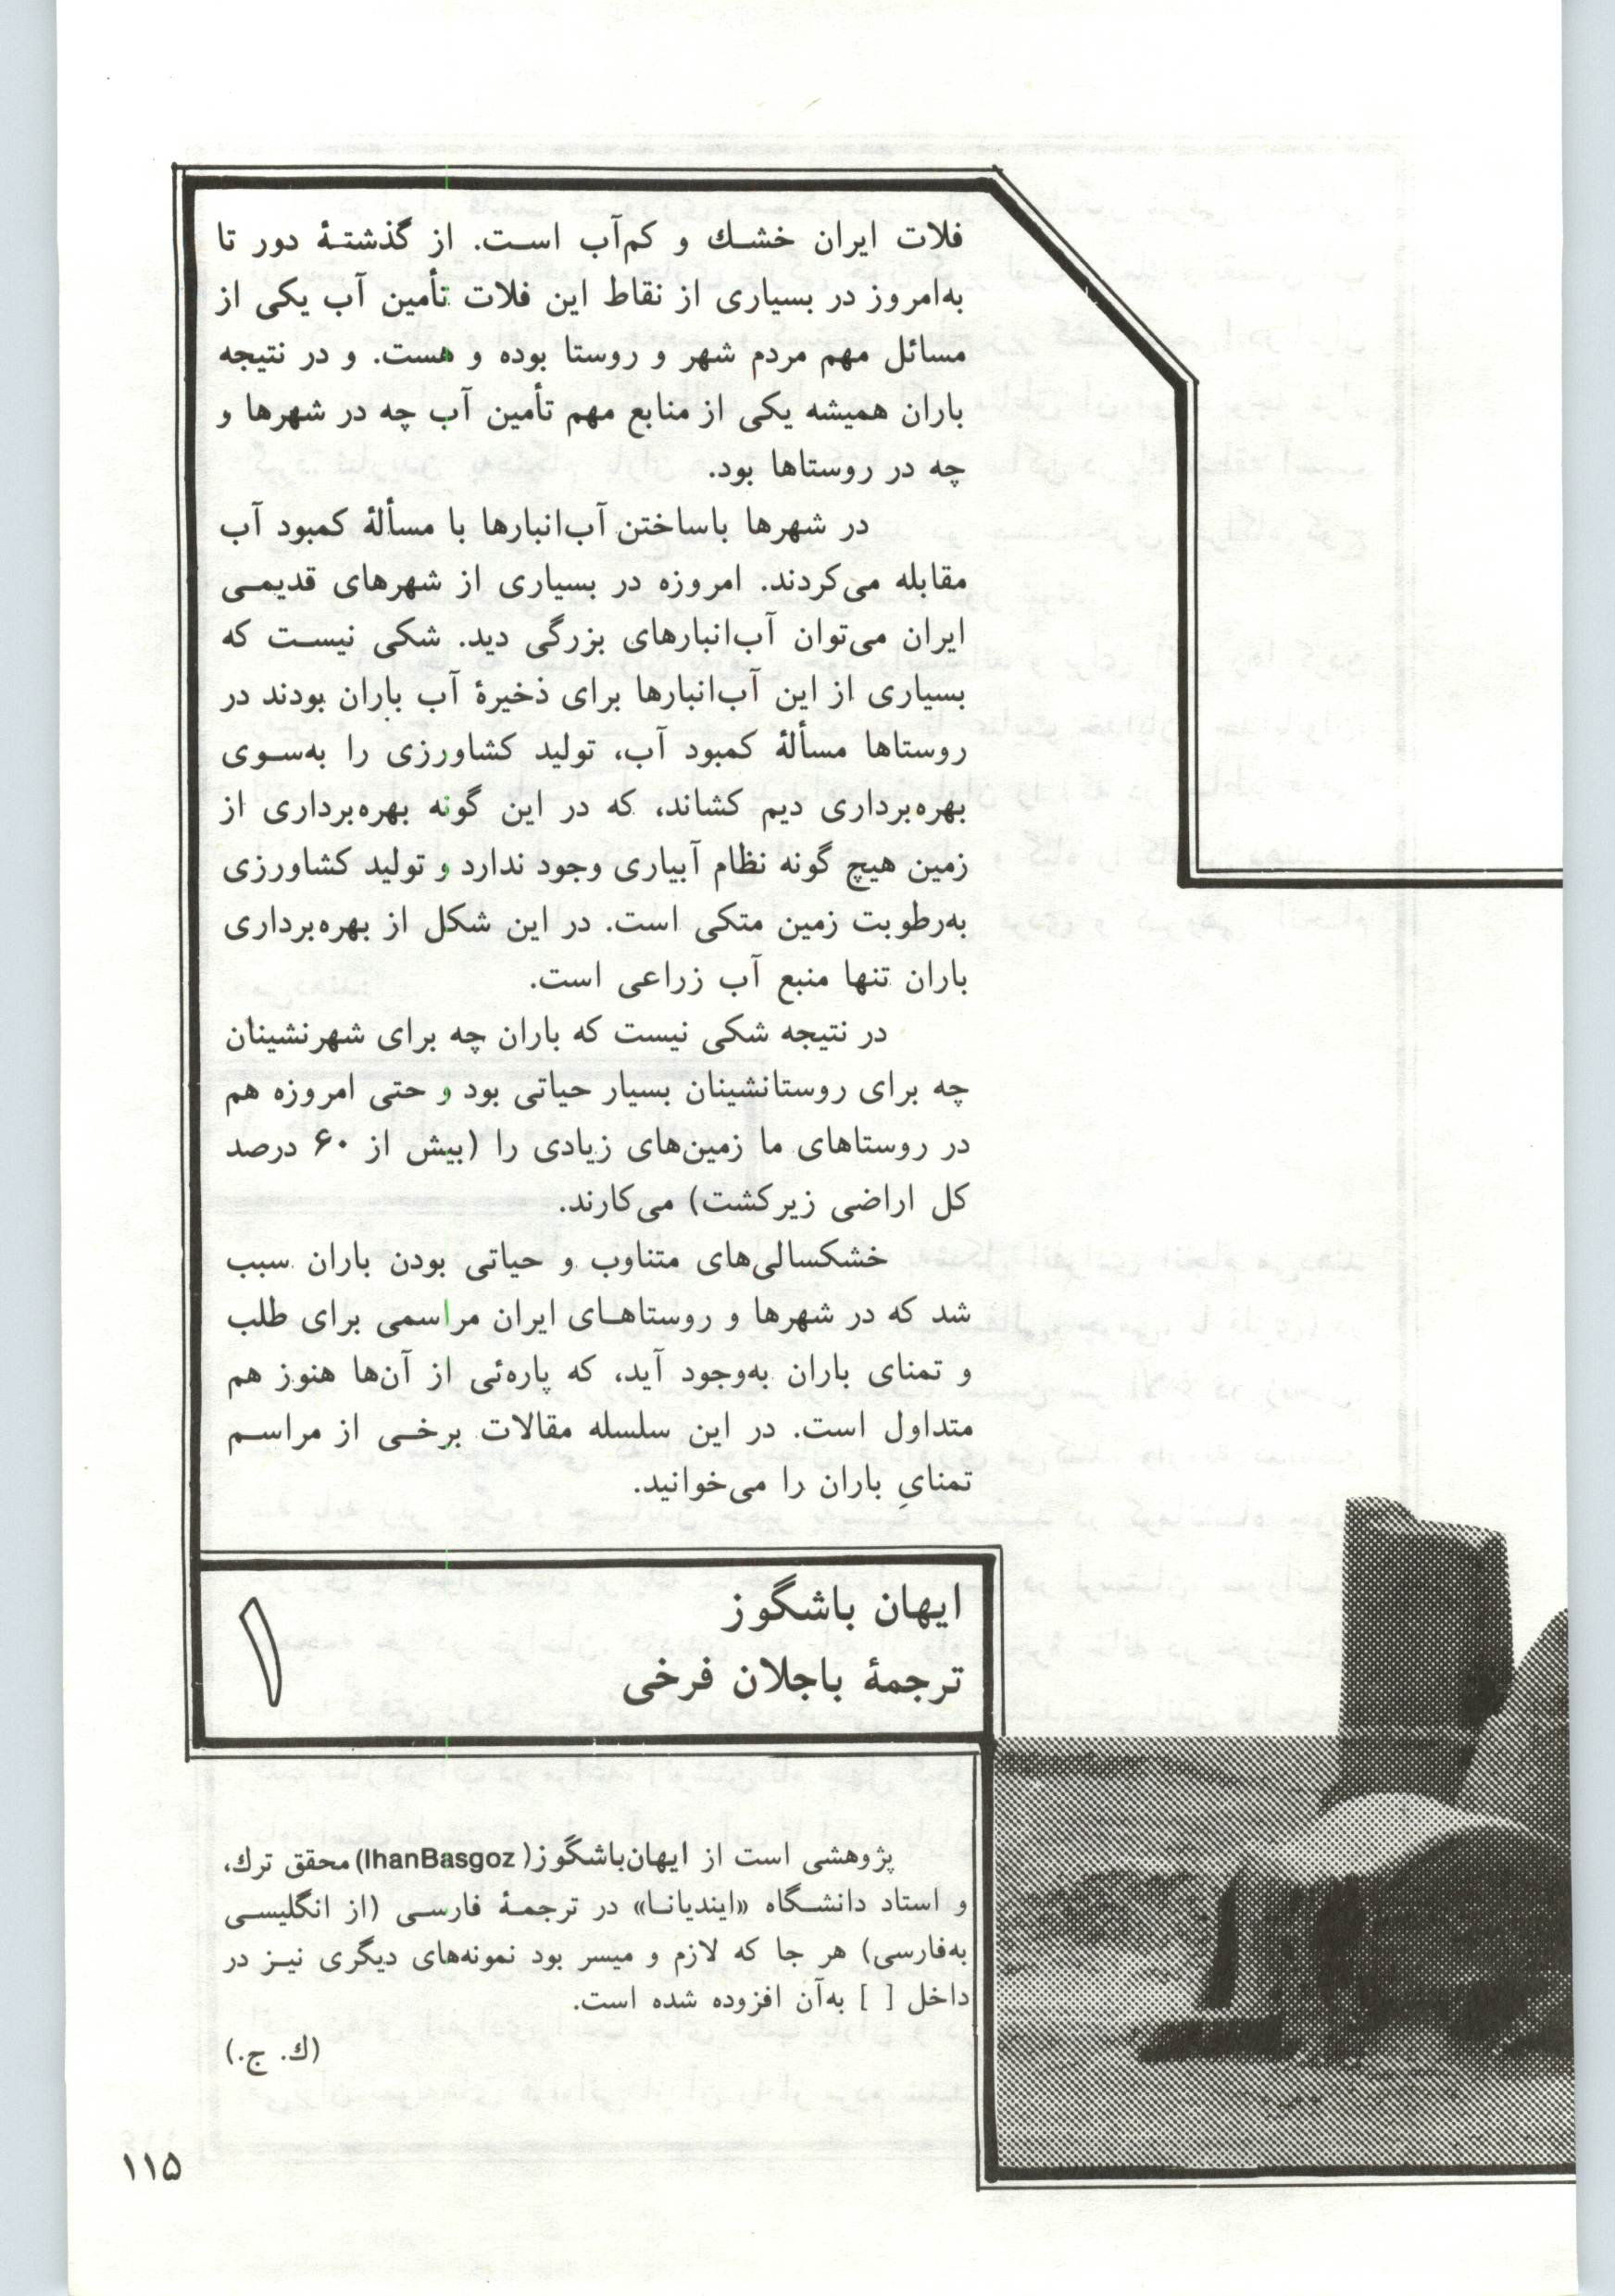 فلات ایران خشك و کم‌آب است. از گذشتهٔ دور تا
به‌امروز در بسیاری از نقاط این فلات تأمین آب یکی از
مسائل مهم مردم شهر و روستا بوده و هست. و در نتیجه
باران همیشه یکی از منابع مهم تأمین آب چه در شهرها و
چه در روستاها بود.
در شهرها باساختن آب‌انبارها با مسألهٔ کمبود آب
مقابله می‌کردند. امروزه در بسیاری از شهرهای قدیمی
ایران می‌توان آب‌انبارهای بزرگی دید. شکی نیست که
بسیاری از این آب‌انبارها برای ذخیرهٔ آب باران بودند در
روستاها مسألهٔ کمبود آب، تولید کشاورزی را به‌سوی
بهره‌برداری دیم کشاند، که در این گونه بهره‌برداری از
زمین هیچ گونه نظام آبیاری وجود ندارد و تولید کشاورزی
به‌رطوبت زمین متکی است. در این شکل از بهره‌برداری
باران تنها منبع آب زراعی است.
در نتیجه شکی نیست که باران چه برای شهرنشینان
چه برای روستانشینان بسیار حیاتی بود و حتی امروزه هم
در روستاهای ما زمین‌های زیادی را (بیش از ۶۰ درصد
کل اراضی زیرکشت) می‌کارند.
خشکسالی‌های متناوب و حیاتی بودن باران سبب
شد که در شهرها و روستاهای ایران مراسمی برای طلب
و تمنای باران به‌وجود آید، که پاره‌ئی از آن‌ها هنوز هم
متداول است. در این سلسله مقالات برخی از مراسم
تمنایِ باران را می‌خوانید.
ایهان باشگوز
ترجمهٔ باجلان فرخی
۱
پژوهشی است از ایهان‌باشگوز (IhanBasgoz) محقق ترك،
و استاد دانشگاه «ایندیانا» در ترجمهٔ فارسی (از انگلیسی
به‌فارسی) هر جا که لازم و میسر بود نمونه‌های دیگری نیز در
داخل [ ] به‌آن افزوده شده است.
(ك. ج.)
۱۱۵